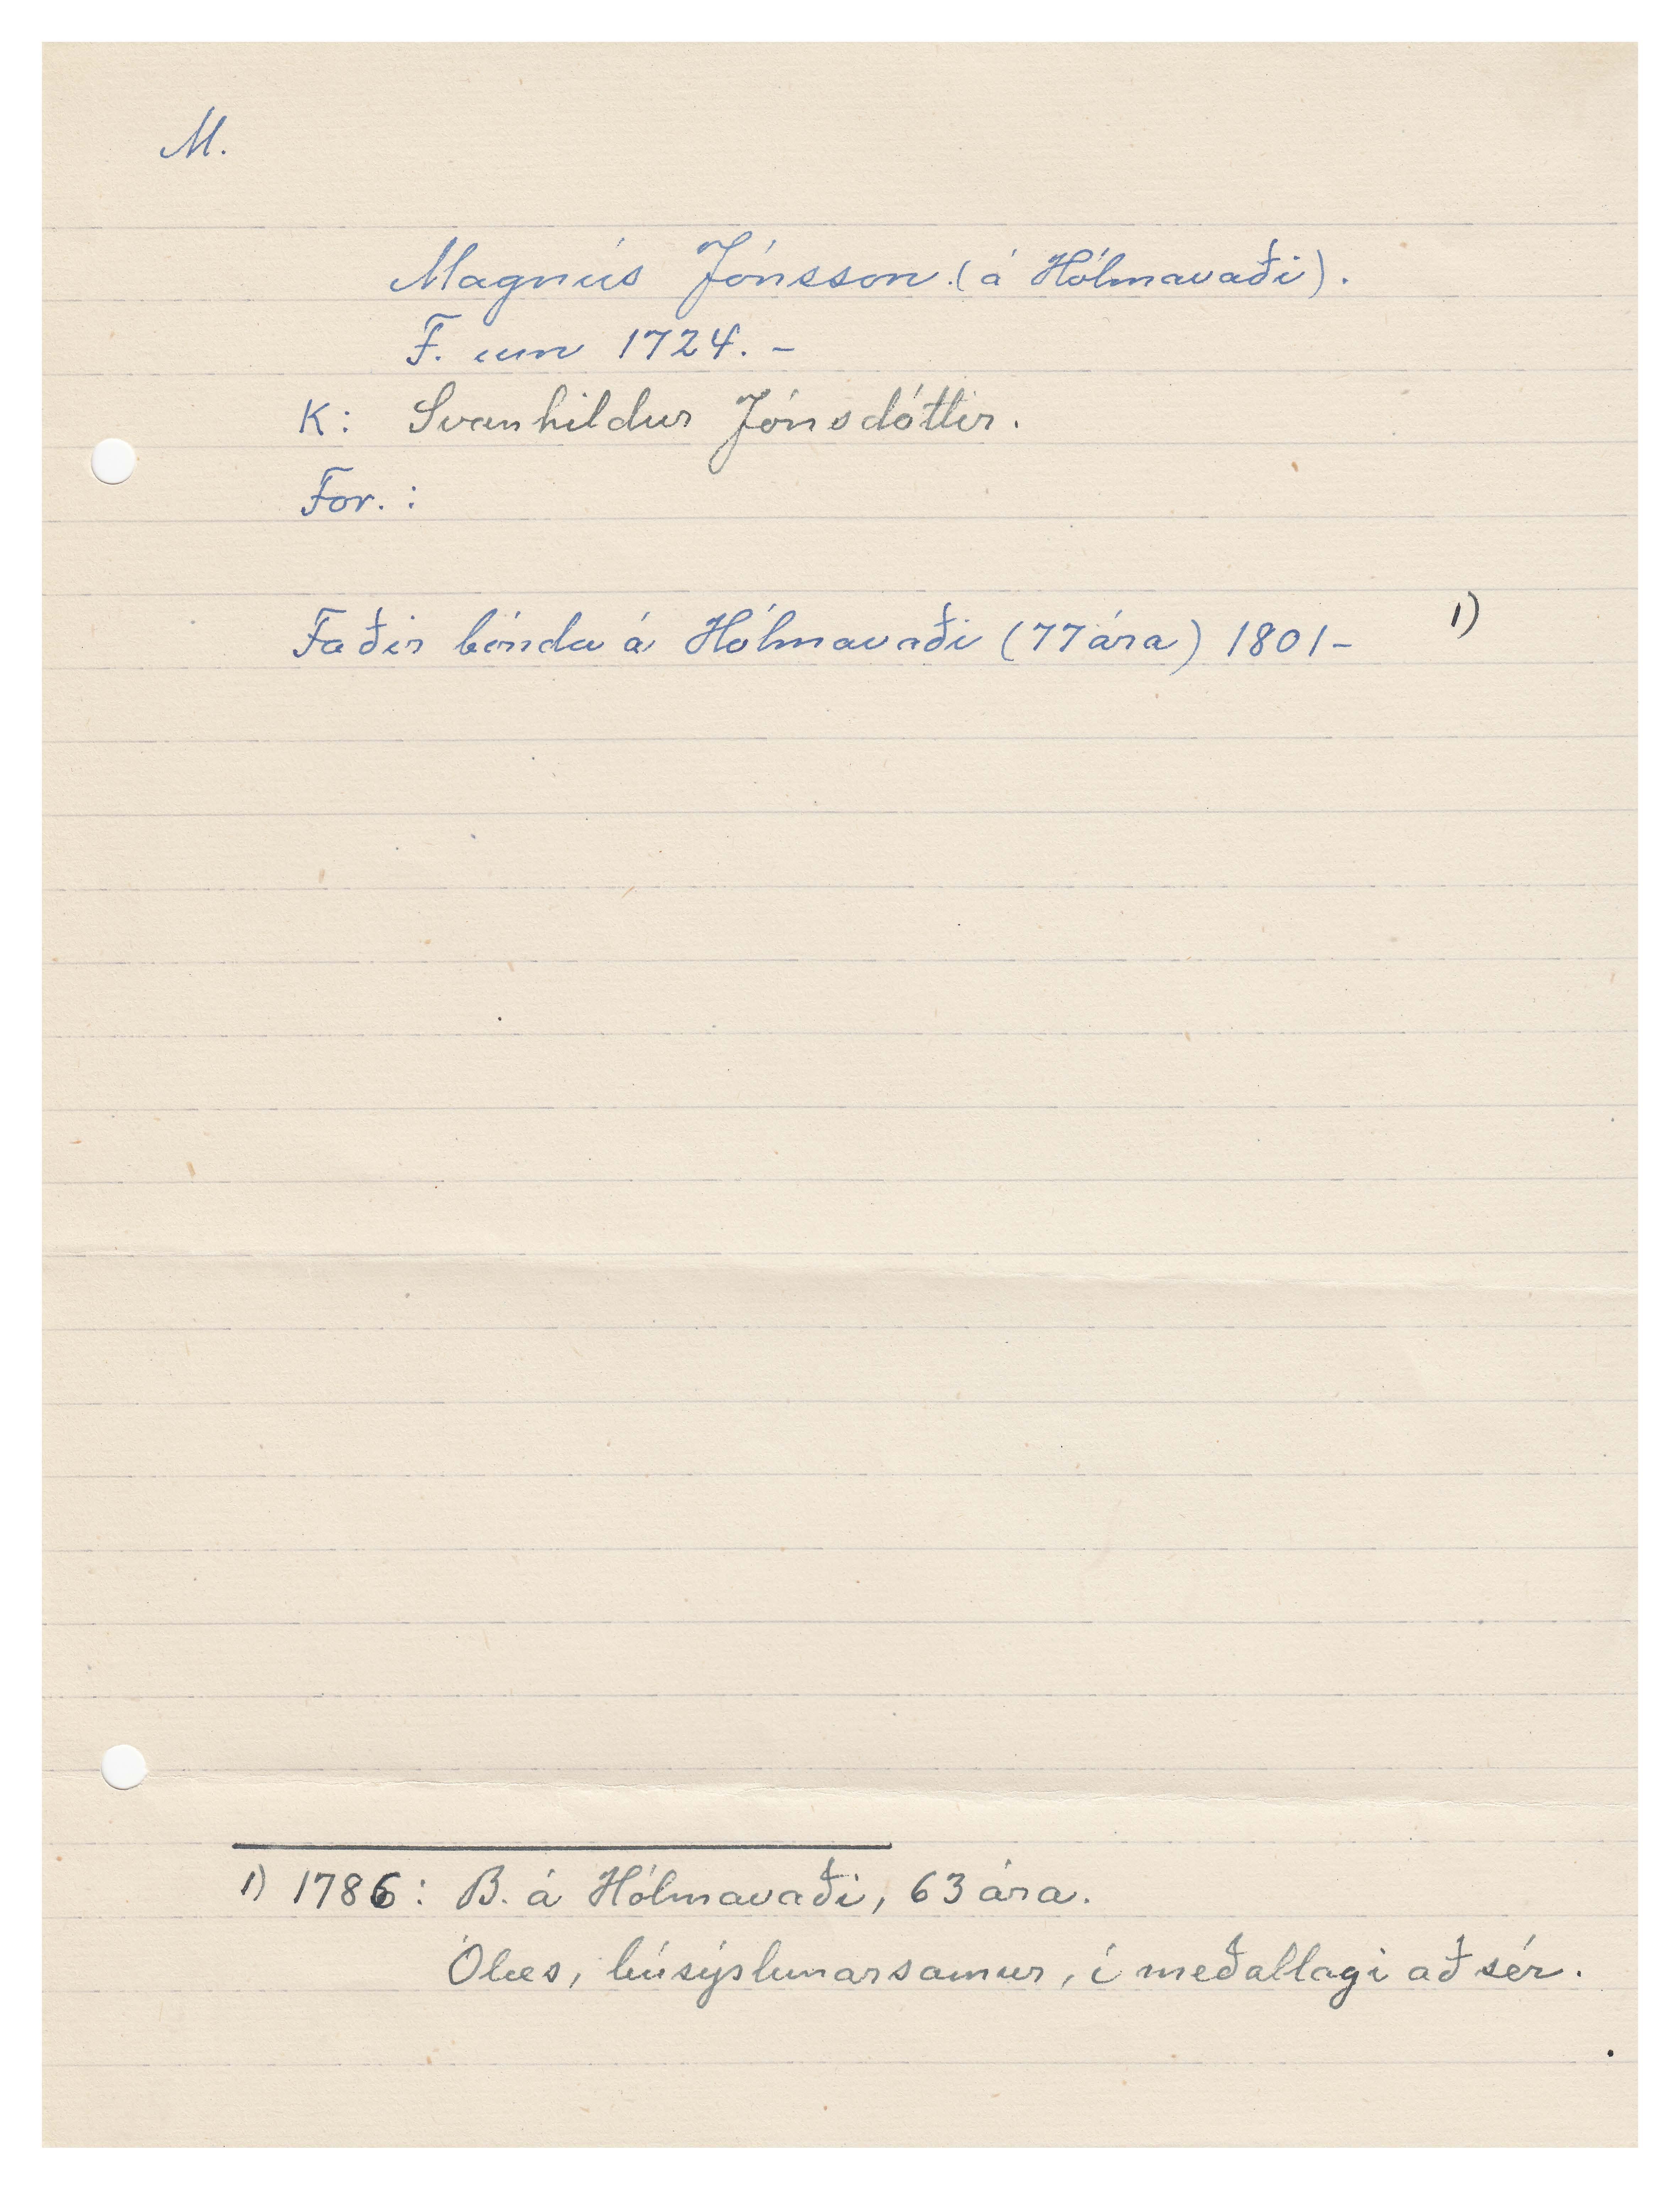 M.
Magnús Jónsson. (á Hólmavaði).
F. um 1724. -
K: Svanhildur Jónsdóttir.
For. :
Faðir bónda á Hólmavaði (77 ára) 1801- 1)
1) 1786: B. á Hólmavaði, 63 ára.
Ólæs, búsýslunarsamur, í meðallagi að sér.